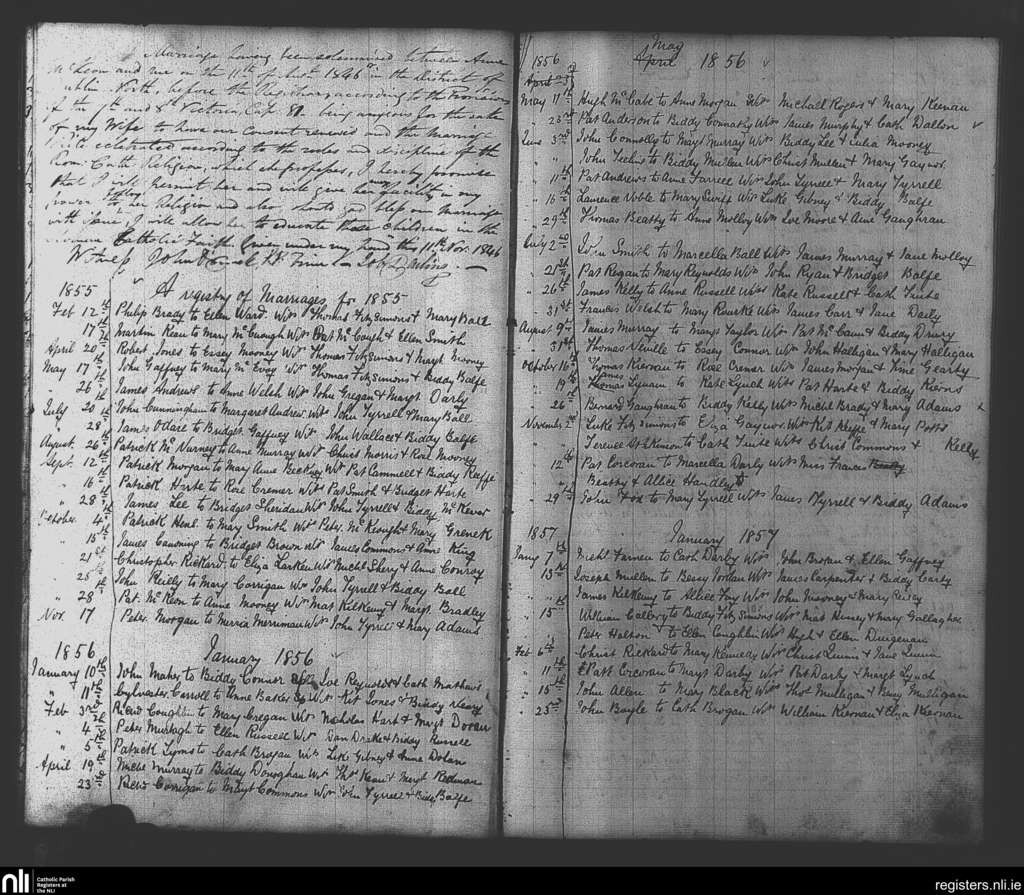 Marriage having been solemnized between Anne
McKeon and me on the 11th of Inst 1846 in the District of
North, before the Registrar according to the Provisions
of the 7th and 8th Victoria, Cap 81 being anxious for the sake
of my Wife to have our consent renewed and the Marriage
celebrated according to the rules and discipline of the
Rom. Cath. Religion, which she professes, I hereby promise
that I will permit her and will give her every facility in my
power in her Religion and also should God bless our Marriage
with issue I will allow her to educate those children in the
Roman Catholic Faith Given under my hand this 11th Nov. 1846
Witness John
1855 A registry of Marriages for 1855
Feb 12th Philip Brady to Ellen Ward. Wts Thomas FitzSimons & Mary Ball
" 17th Martin Keen to Mary McEnough Wts Pat McCaugh & Ellen Smith
April 20th Robert Jones to Essey Mooney Wts Thomas FitzSimons & Margt Mooney
May 17th John Gaffney to Mary McEvoy Wts Thomas FitzSimons & Biddy Balfe
" 26th James Andrews to Anne Welsh Wts John Gregan & Margt Darly
July 20th John Cunningham to Margaret Andrew. Wts John Tyrrell & Mary Ball
" 28th James O'Dare to Bridget Gaffney Wts John Wallace & Biddy Balfe
August 26th Patrick McNurney to Anne Murray Wts Christ Morris & Rose Mooney
Sept. 12th Patrick Morgan to Mary Anne Wts Pat Cammell & Biddy Keeffe
" 16th Patrick Harte to Rose Cremer Wts Pat Smith & Bridget Harte
" 28th James Lee to Bridget Sheridan Wts John Tyrrell & Biddy
October 4th Patrick to Mary Smith Wts Peter McKeough & Mary
" 15th James Canning to Bridget Brown Wts James Commons & Anne King
" 21st Christopher Rickard to Eliza Larken Wts Michl Shery & Anne Conroy
" 25th John Reilly to Mary Corrigan Wts John Tyrrell & Biddy Ball
" 28th Pat. McKeon to Anne Mooney Wts Mat Kilkenny & Margt. Bradley
Nov. 17 Peter Morgan to Merriman Wts John Tyrrell & Mary Adams
1856 January 1856
January 10th John Maher to Biddy Connor Wts Joe Reynolds & Cath Mathews
" 11th Sylvester Carroll to Anne Wts Kit Jones & Biddy
Feb 3rd Coughlin to Mary Cregan Wts Nicholas Hart & Margt Doran
" 4th Peter Murtagh to Ellen Russell Wts Dan Drake & Biddy Russell
" 5th Patrick Lyons to Cath Brogan Wts Luke Gibney & Anne Dolan
April 19th Michl Murray to Biddy Donoghan Wts Thos Kean & Margt Redman
" 23rd Corrigan to Margt Commons Wts John Tyrrell & Biddy Balfe
1856 May
April 1856
April
May 11th Hugh McCabe to Anne Morgan Wts Michael Rogers & Mary Keenan
" 23rd Pat Anderson to Biddy Connathy Wts James Murphy & Cath Dalton
June 3rd John Connolly to Margt Murray Wts Biddy Lee & Julia Mooney
" " John to Biddy Mullen Wts Christ Mullen & Mary Gaynor
" 11th Pat Andrews to Anne Farrell Wts John Tyrrell & Mary Tyrrell
" 16th Laurence Noble to Mary Swift Wts Luke Gibney & Biddy Balfe
" 29th Thomas Beatty to Anne Molloy Wts Joe Moore & Anne Gaughran
July 2nd John Smith to Marcella Ball Wts James Murray & Jane Molloy
" 25th Pat Regan to Mary Reynolds Wts John Ryan & Bridget Balfe
" 26th James Kelly to Anne Russell Wts Kate Russell & Cath Tuite
" 31st Francis Welsh to Mary Rourke Wts James Carr & Jane Daily
August 9th James Murray to Margt Taylor Wts Pat McCann & Biddy Drury
" 31st Thomas Neville to Essey Connor Wts John Halligan & Mary Halligan
October 16th Thomas Kiernan to Rose Cremer Wts James Morgan & Anne Gearty
" 19th James
Thomas Lynam to Kate Lynch Wts Pat Harte & Biddy Kiernes
" 26th Bernard Gaughran to Biddy Kelly Wts Michl Brady & Mary Adams
November 2nd Luke FitzSimons to Eliza Gaynor Wts Kit Keeffe & Mary Potts
" " Terence Atkinson to Cath Tuite Wts Christ Commons & Kelly
" 12th Pat Corcoran to Marcella Darly Wts Miss Frances
Beatty & Allice Handley
" 29th John to Mary Tyrrell Wts James Tyrrell & Biddy Adams
1857 January 1857
Jany 7th Michl Farnen to Cath Darby Wts John Brogan & Ellen Gaffney
" 13th Joseph Mullen to Bessy Jordan Wts James Carpenter & Biddy Carty
" " James Kilkenny to Allice Foy Wts John Mooney & Mary
" 15 William Callery to Biddy FitzSimons Wts Mat Henry & Mary Gallagher
Peter Halton to Ellen Coughlin Wts Hugh & Ellen Duigenan
Feb 6th Christ Rickard to Mary Kennedy Wts Christ Quinn & Jane Quinn
" 11th Pat Corcoran to Margt Darby Wts Pat Darby & Margt Lynch
" 15th John Allen to Mary Black Wts Thos Mulligan & Mulligan
" 23rd John Boyle to Cath Brogan Wts William Keernan & Eliza Keernan
nli Catholic Parish
Registers at
the NLI
registers.nli.ie